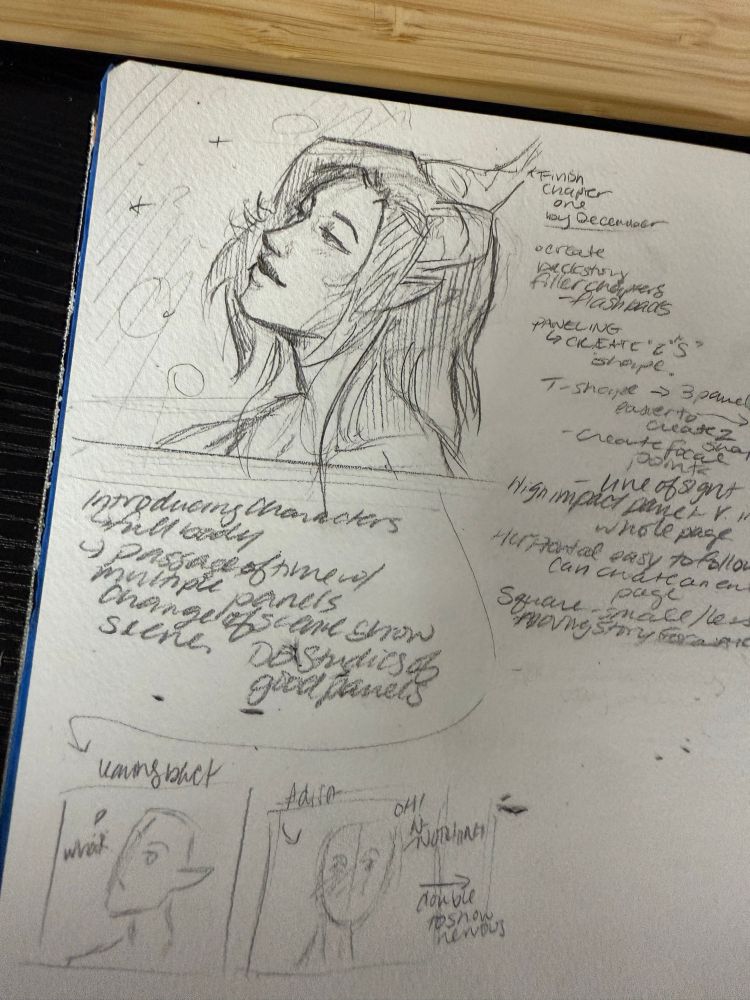 Finish
Chapter
one
by December
create
backstory
filler chapters
- flashbacks
PANELING
↳ CREATE "Z" "S"
shape.
T-shape → 3 panel
easier to
create Z
- create focal
points
- Line of sight
High impact panel
whole page
Horizontal easy to follow
can create an
page
Square - small / less
moving story forward
Introducing characters
full body
↳ passage of time w/
multiple panels
change of scene show
scene.
DO Studies of
good panels
what
OH!
N-
NOTHING
double
to show
nervous